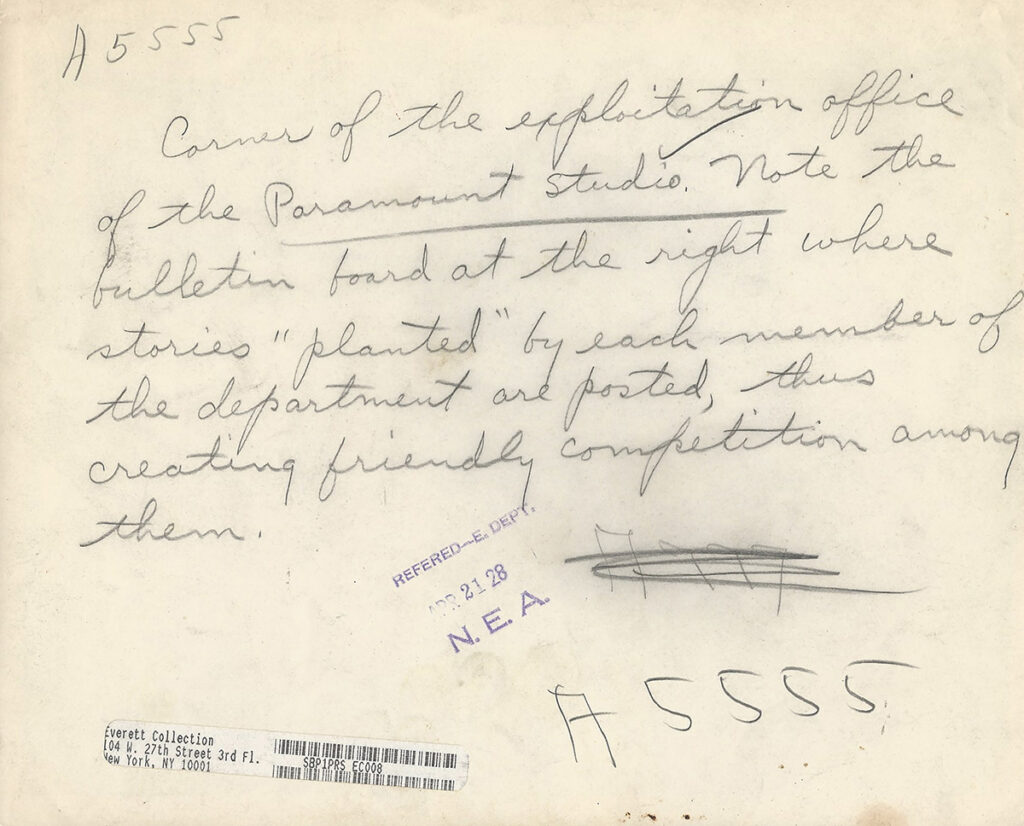 A 5555
Corner of the exploitation office
of the Paramount Studio. Note the
bulletin board at the right where
stories "planted" by each member of
the department are posted, thus
creating friendly competition among
them.
REFERED—E. DEPT.
APR 21 28
N. E. A.
A 5555
Everett Collection
104 W. 27th Street 3rd Fl.
New York, NY 10001
SBP1PRS EC008